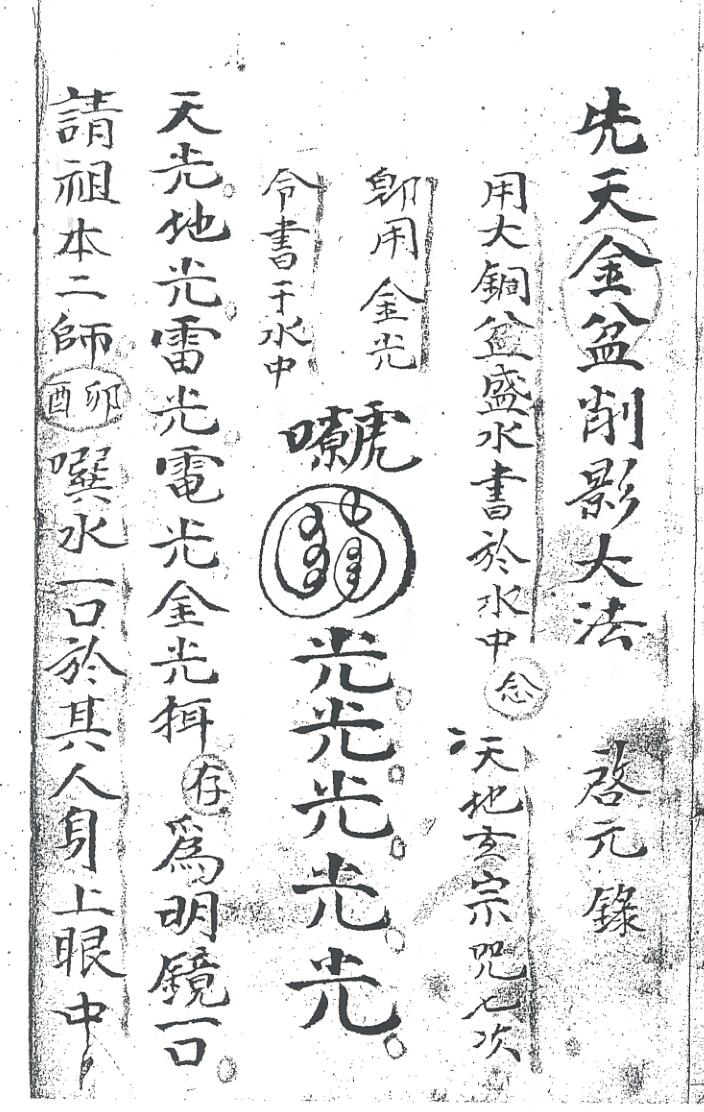 先天金盆削影大法 啓元錄
用大銅盆盛水書於水中念天地玄宗咒七次
即用金光
令書于水中
虎嘹
光光光光光
天光地光雷光電光金光揖存為明鏡一口
請祖本二師卯酉噀水一口於其人身上眼中